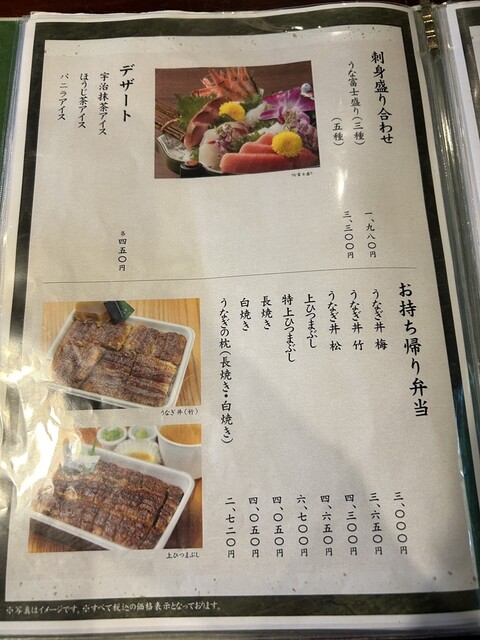 刺身盛り合わせ
うな富士盛り(三種) 一、九八〇円
(五種) 三、三〇〇円
デザート
宇治抹茶アイス
ほうじ茶アイス
バニラアイス
各 四五〇円
お持ち帰り弁当
うなぎ丼 梅 三、〇〇〇円
うなぎ丼 竹 三、六五〇円
うなぎ丼 松 四、三〇〇円
上ひつまぶし 四、六五〇円
特上ひつまぶし 六、七〇〇円
長焼き 四、〇五〇円
白焼き 四、〇五〇円
うなぎの枕(長焼き・白焼き) 二、七二〇円
うなぎ丼(竹)
上ひつまぶし
※写真はイメージです。※すべて税込の価格表示となっております。